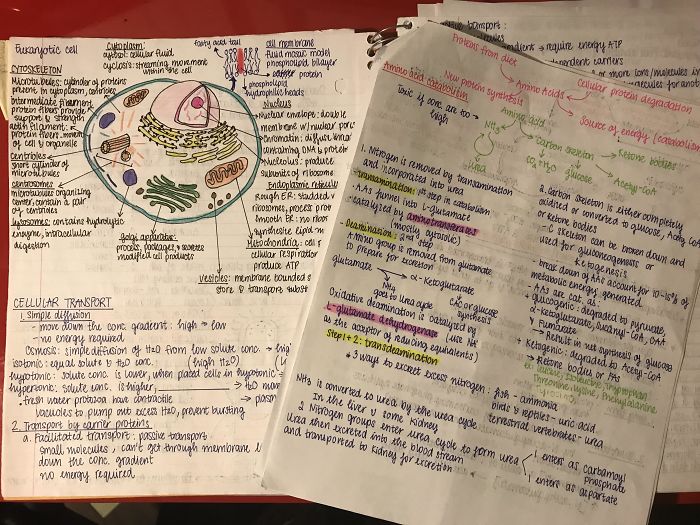 Eukaryotic cell
CYTOSKELETON
Microtubules: cylinder of proteins
present in cytoplasm, centrioles
intermediate filament
protein fibres provide
support & strength
actin filament:
protein fibres
of cell & organelle
Centrioles
short cylinder of
microtubules
centrosomes
microtubules organizing
center, contain a pair
of centrioles
lysosomes: contains hydrolytic
enzyme, intracellular
digestion
Cytoplasm:
cytosol: cellular fluid
cyclosis: streaming movement
within the cell
fatty acid tail
cell membrane
fluid mosaic model
phospholipid bilayer
protein
phospholipid
hydrophilic heads
Nucleus
Nuclear envelope: double
membrane w/ nuclear pores
Chromatin: diffuse
containing DNA & protein
Nucleolus: produce
subunits of ribosome
Endoplasmic reticulu
Rough ER: studded w
ribosomes, process prot
Smooth ER: no ribos
synthesize lipid
Mitochondria: cell
cellular respiration
produce ATP
Golgi apparatus:
process, package & secrete
modified cell products
Vesicles: membrane bounded s
store & transport subst
CELLULAR TRANSPORT
1. Simple diffusion
- move down the conc. gradient: high → low
- no energy required
Osmosis: simple diffusion of H2O from low solute conc. → hig
isotonic: equal solute & H2O conc. (high H2O)
hypotonic: solute conc. is lower, when placed cells in hypotonic
hypertonic: solute conc. is higher, → H2O mov
· fresh water protozoa have contractile → plasm
vacuoles to pump out excess H2O, prevent bursting
2. Transport by carrier proteins
a. Facilitated transport: passive transport
small molecules, can't get through membrane
down the conc. gradient
no energy required
transport:
→ require energy ATP
dependent carriers
or more ions/molecules
Proteins from diet
Amino acid catabolism
New protein synthesis
Amino Acids
Cellular protein degradation
Source of energy (catabolism
toxic if conc. are too
high
Amino acid
NH3
Carbon skeleton
Urea
CO2 + H2O
glucose
Ketone bodies
Acetyl-CoA
1. Nitrogen is removed by transamination
and incorporated into urea
- transamination: 1st step in catabolism
· AAs funnel into L-glutamate
· catalyzed by aminotransferases
(mostly cytosolic)
- Deamination: 2nd step
Amino group is removed from glutamate
to prepare for excretion
glutamate → α-Ketoglutarate
NH3
goes to urea cycle
CAC or glucose
synthesis
Oxidative deamination is catalyzed by
L-glutamate dehydrogenase (use NA
as the acceptor of reducing equivalents)
Step 1+2: transdeamination
2. Carbon skeleton is either completely
oxidized or converted to glucose, Acetyl-CoA
or ketone bodies
- C skeleton can be broken down and
used for gluconeogenesis or
ketogenesis
- break down of AAs account for 10-15% of
metabolic energy generated
- AAs are cat. as:
· glucogenic: degraded to pyruvate,
α-ketoglutarate, succinyl-CoA, OAA
& Fumarate
→ Result in net synthesis of glucose
· Ketogenic: degraded to Acetyl-CoA
→ Ketone bodies or FAs
* 3 ways to excret excess nitrogen: fish - ammonia
birds & reptiles - uric acid
terrestrial vertebrates - urea
NH3 is converted to urea by the urea cycle
In the liver & some kidney
2 Nitrogen groups enter urea cycle to form urea
1 enters as carbamoyl
phosphate
1 enters as aspartate
Urea then excreted into the blood stream
and transported to kidney for excretion